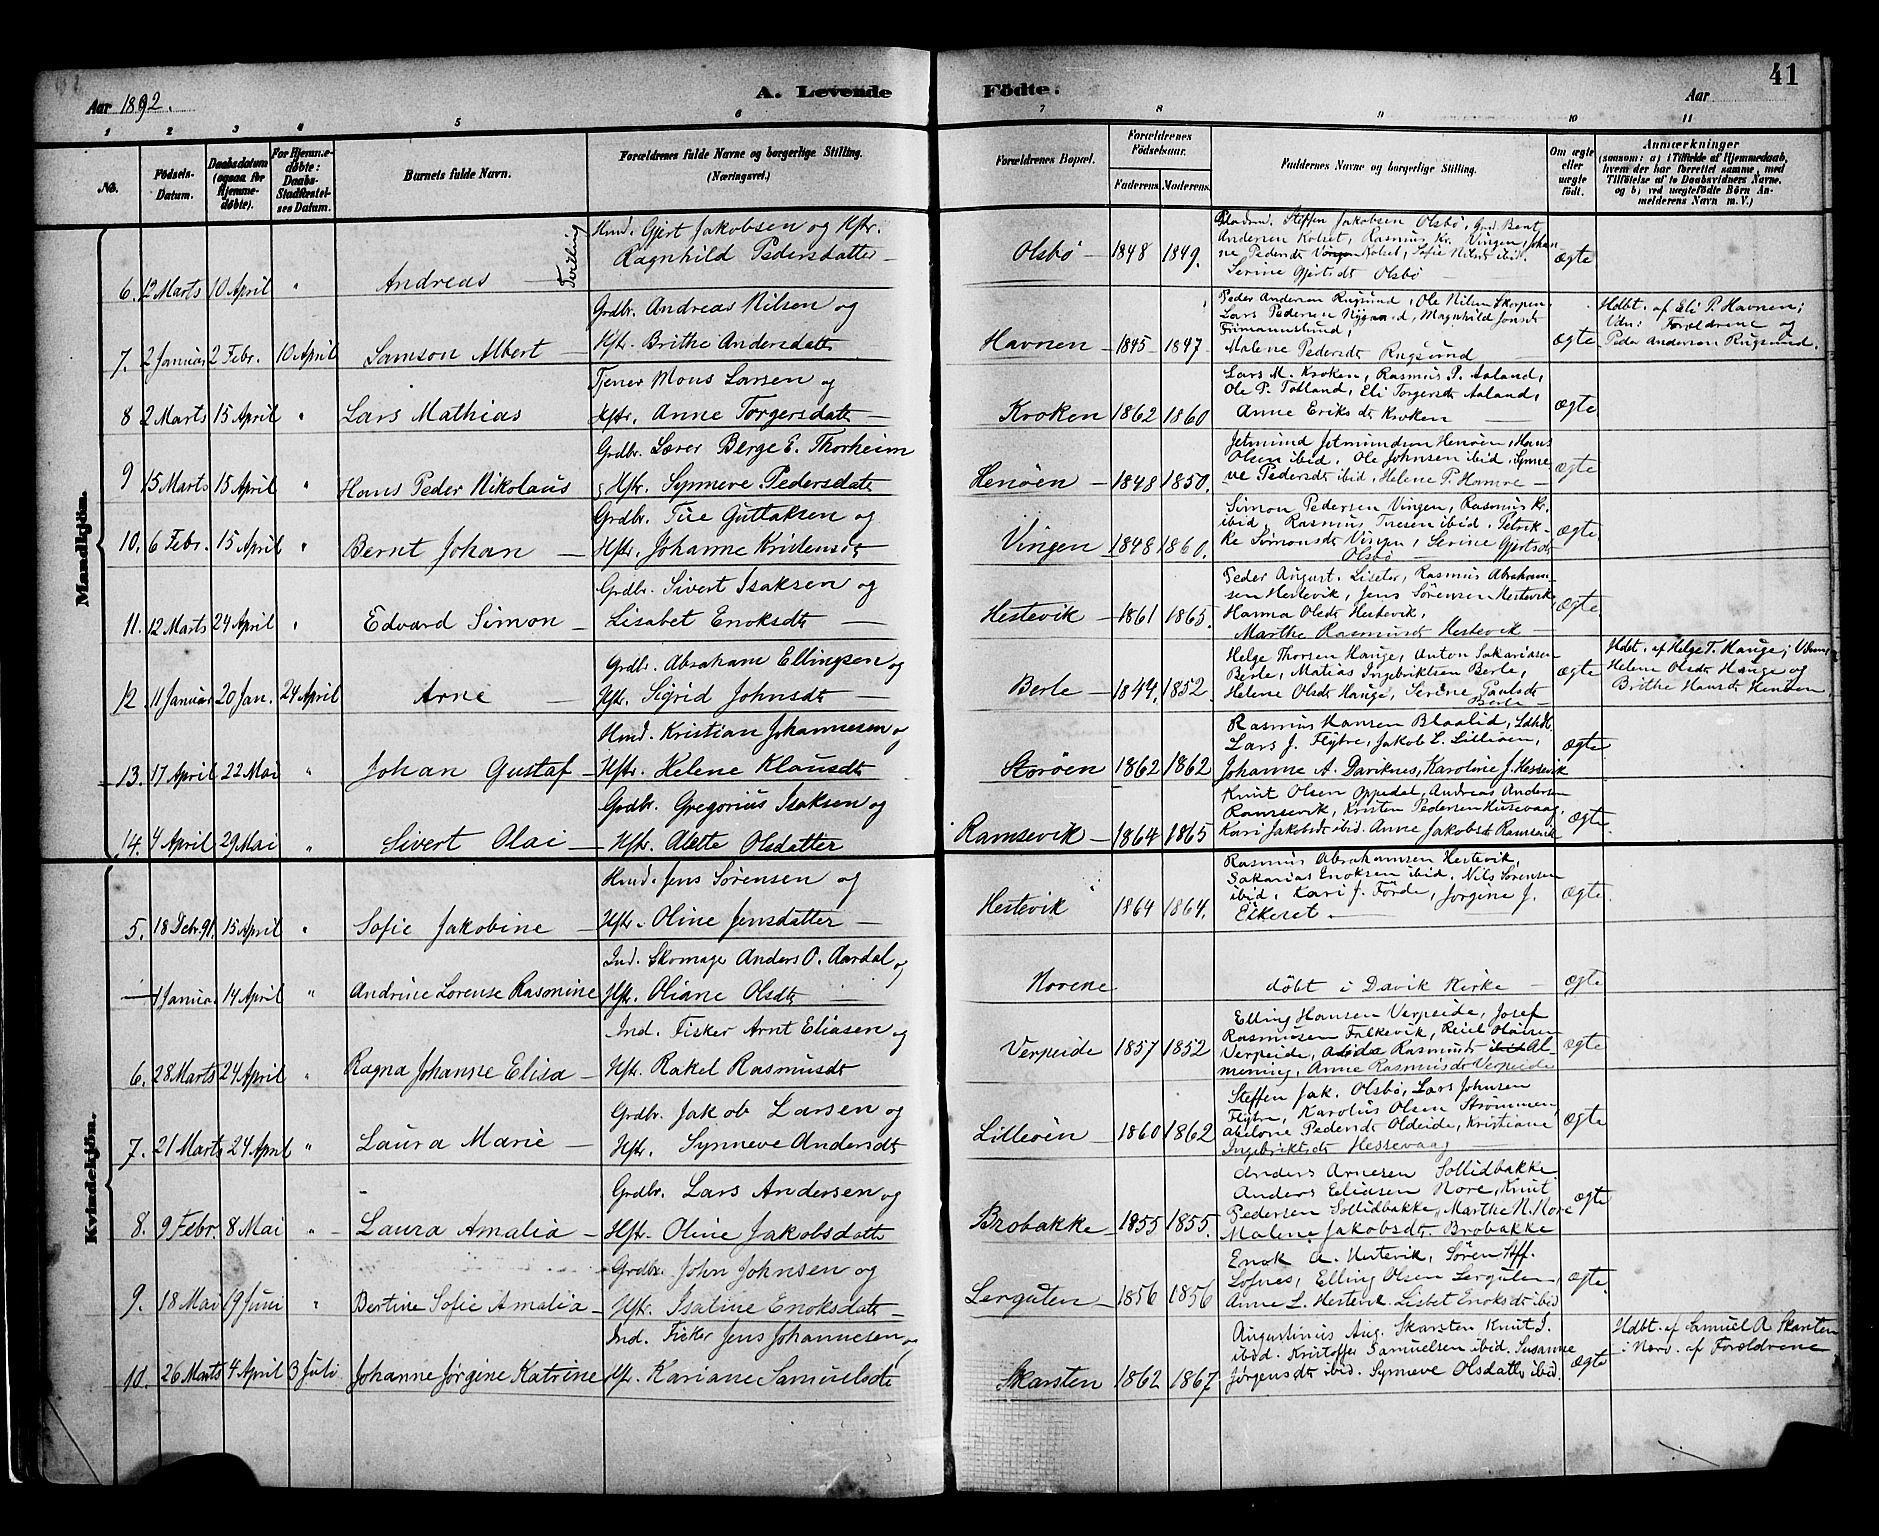 41
Aar 1892.
A. Levende Födte.
Aar
1 2 3 4 5 6 7 8 9 10 11
No.
Födsels-Datum.
Daabsdatum (ogsaa for Hjemmedöbte).
For Hjemmedöbte: Daabs-Stadfæstelses Datum.
Barnets fulde Navn.
Forældrenes fulde Navne og borgerlige Stilling. (Næringsvei.)
Forældrenes Bopæl.
Forældrenes Födselsaar.
Faderens. Moderens.
Faddernes Navne og borgerlige Stilling.
Om ægte eller uægte födt.
Anmærkninger
(saasom: a) i Tilfælde af Hjemmedaab, hvem der har forrettet samme, med Tilföielse af to Daabsvidners Navne, og b) ved uægtefödte Börn Anmelderens Navn m. V.)
Mandkjön.
6. 12 Marts 10 April " Andreas — Tvilling
Hmd. Gjert Jakobsen og Hstr.
Ragnhild Pedersdatter —
Olsbø — 1848 1849.
Steffen Jakobsen Olsbø, Gmd Bent
Andersen Kolset, Rasmus Kr. Vingen, Johan-
ne Pedersdt Kolset, Sofie Nilsdt ibid.
Serine Gjertsdt Olsbø —
ægte
7. 2 Januar 2 Febr. 10 April Samson Albert —
Grdbr. Andreas Nilsen og
Hstr. Brithe Andersdatr
Havnen — 1845 — 1847
Peder Andersen Rugsund, Ole Nilsen Skorpen,
Lars Pedersen Nygaard, Magnhild Jonsdt
Frimannslund,
Malene Pedersdt Rugsund
ægte
Hdbt. af Eli P. Havnen;
Vdn: Forældrene og
Peder Andersen Rugsund.
8 2 Marts 15 April " Lars Mathias
Tjener Mons Larsen og
Hstr. Anne Torgersdatr —
Kroken 1862 1860
Lars M. Kroken, Rasmus P. Aaland,
Ole P. Totland, Eli Torgersdt Aaland,
Anne Eriksdt Kroken
ægte.
9 15 Marts 15 April " Hans Peder Nikolaus
Grdbr. Lærer Berge E. Thorheim
g Hstr. Synneve Pedersdatr
Henøen — 1848 1850.
Jetmund Jetmundsen Henøen, Hans
Olsen ibid, Ole Johnsen ibid, Synne-
ve Pedersdt ibid, Helene P. Hamre —
ægte
10. 6 Febr. 15 April " Bernt Johan —
Grdbr. Tue Guttaksen og
Hstr. Johanne Kristensdt
Vingen — 1848 1860.
Simon Pedersen Vingen, Rasmus Kr.
ibid, Rasmus Tuesen ibid, Petrik-
ke Simonsdt Vingen, Serine Gjertsdt
Olsbø —
ægte.
11. 12 Marts 24 April " Edvard Simon —
Grdbr. Sivert Isaksen og
Lisabet Enoksdt —
Hestevik — 1861 1865.
Peder August. Liseter, Rasmus Abraham-
sen Hestevik, Jens Sørensen Hestevik,
Hanna Olsdt Hestevik,
Marthe Rasmusdt Hestevik —
ægte.
12. 11 Januar 20 Jan. 24 April Arne —
Grdbr. Abraham Ellingsen og
Hstr. Sigrid Johnsdt —
Berle — 1844. 1852.
Helge Thorsen Hauge, Anton Sakariasen
Berle, Matias Ingebriktsen Berle,
Helene Olsdt Hauge, Serine Paulsdt
Berle —
ægte
Hdbt. af Helge T. Hauge; Vdn:
Helene Olsdt Hauge og
Brithe Hansdt Henøen
13. 17 April 22 Mai " Johan Gustaf —
Hmd. Kristian Johannesen og
Hstr. Helene Klausdt
Storøen 1862 1862
Rasmus Hansen Blaalid,
Lars J. Flybre, Jakob L. Lilleøen,
Johanne A. Daviknes, Karoline J. Hessevik
ægte
14. 4 April 29 Mai " Sivert Olai —
Grdbr. Gregorius Isaksen og
Hstr. Alette Olsdatter
Ramsevik — 1864 1865
Knut Olsen Oppedal, Andreas Andersen
Ramsevik, Kristen Pedersen Husevaag,
Kari Jakobsdt ibid. Anne Jakobsdt Ramsevik
ægte.
Kvindekjön.
5. 18 Debr. 91. 15 April " Sofie Jakobine —
Hmd. Jens Sørensen og
Hstr. Oline Jensdatter —
Hestevik 1864 1864.
Rasmus Abrahamsen Hestevik,
Sakarias Enoksen ibid, Nils Sørensen
ibid, Kari J. Förde, Jorgine J.
Eikeset. —
ægte.
— 1 Januar 14 April " Andrine Lorense Rasmine
Ind. Skomager Anders O. Aardal og
Hstr. Oliane Olsdt —
Norene
döbt i Davik Kirke —
ægte
6. 28 Marts 24 April " Ragna Johanne Elisa —
Ind. Fisker Arnt Eliasen og
Hstr. Rakel Rasmusdt
Verpeide 1857 1852
Elling Hansen Verpeide, Josef
Rasmusen Falkevik,
Verpeide, Rasmusdt Al-
mening, Anne Rasmusdt Verpeide
ægte
7. 21 Marts 24 April " Laura Marie —
Grdbr. Jakob Larsen og
Hstr. Synneve Andersdt
Lilleöen — 1860 1862
Steffen Jak. Olsbø, Lars Johnsen
Flybre, Karolus Olsen Strømmen,
Abelone Pedersdt Oldeide, Kristiane
Ingebriktsdt Hessevaag
ægte
8. 9 Febr. 8 Mai " Laura Amalia —
Grdbr. Lars Andersen og
Hstr. Oline Jakobsdatr
Brobakke — 1855 1855.
Anders Arnesen Sollidbakke
Anders Eliasen Nore, Knut
Pedersen Sollidbakke, Marthe N. Nore
Malene Jakobsdt. Brobakke
ægte
9. 18 Mai 19 Juni " Bertine Sofie Amalia —
Grdbr. John Johnsen og
Hstr. Isatine Enoksdatr —
Lerguten — 1856 1856
Enok A. Hestevik, Søren Stff.
Lofnes, Elling Olsen Lerguten,
Anne L. Hestevik. Lisbet Enoksdt ibid
ægte.
10. 26 Marts 4 April 3 Juli Johanne Jørgine Katrine
Ind. Fisker Jens Johannesen og
Hstr. Kariane Samuelsdt
Skarsten 1862 1867
Augustinus Aug. Skarsten Knut I.
ibid. Kristoffer Samuelsen ibid. Susanne
Jørgensdt ibid. Synneve Olsdatr ibid.
ægte
Hdbt. af Samuel A. Skarsten
i Nærv. af Forældrene